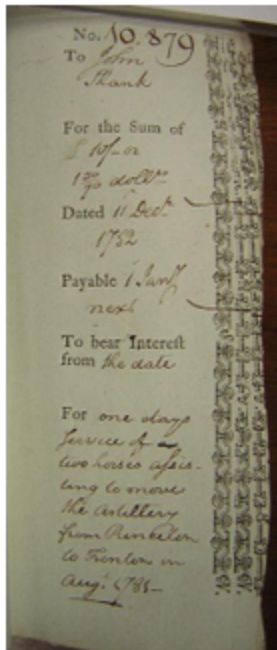 No. 10.879
To John
Shank
For the Sum of
10/- or
dollrs
Dated 11 Decr.
1782
Payable 1 Jany
next
To bear Interest
from the date
For one days
Service of a
two horses assis-
ting to move
the artillery
from Princeton
to Trenton in
Augt. 1781-